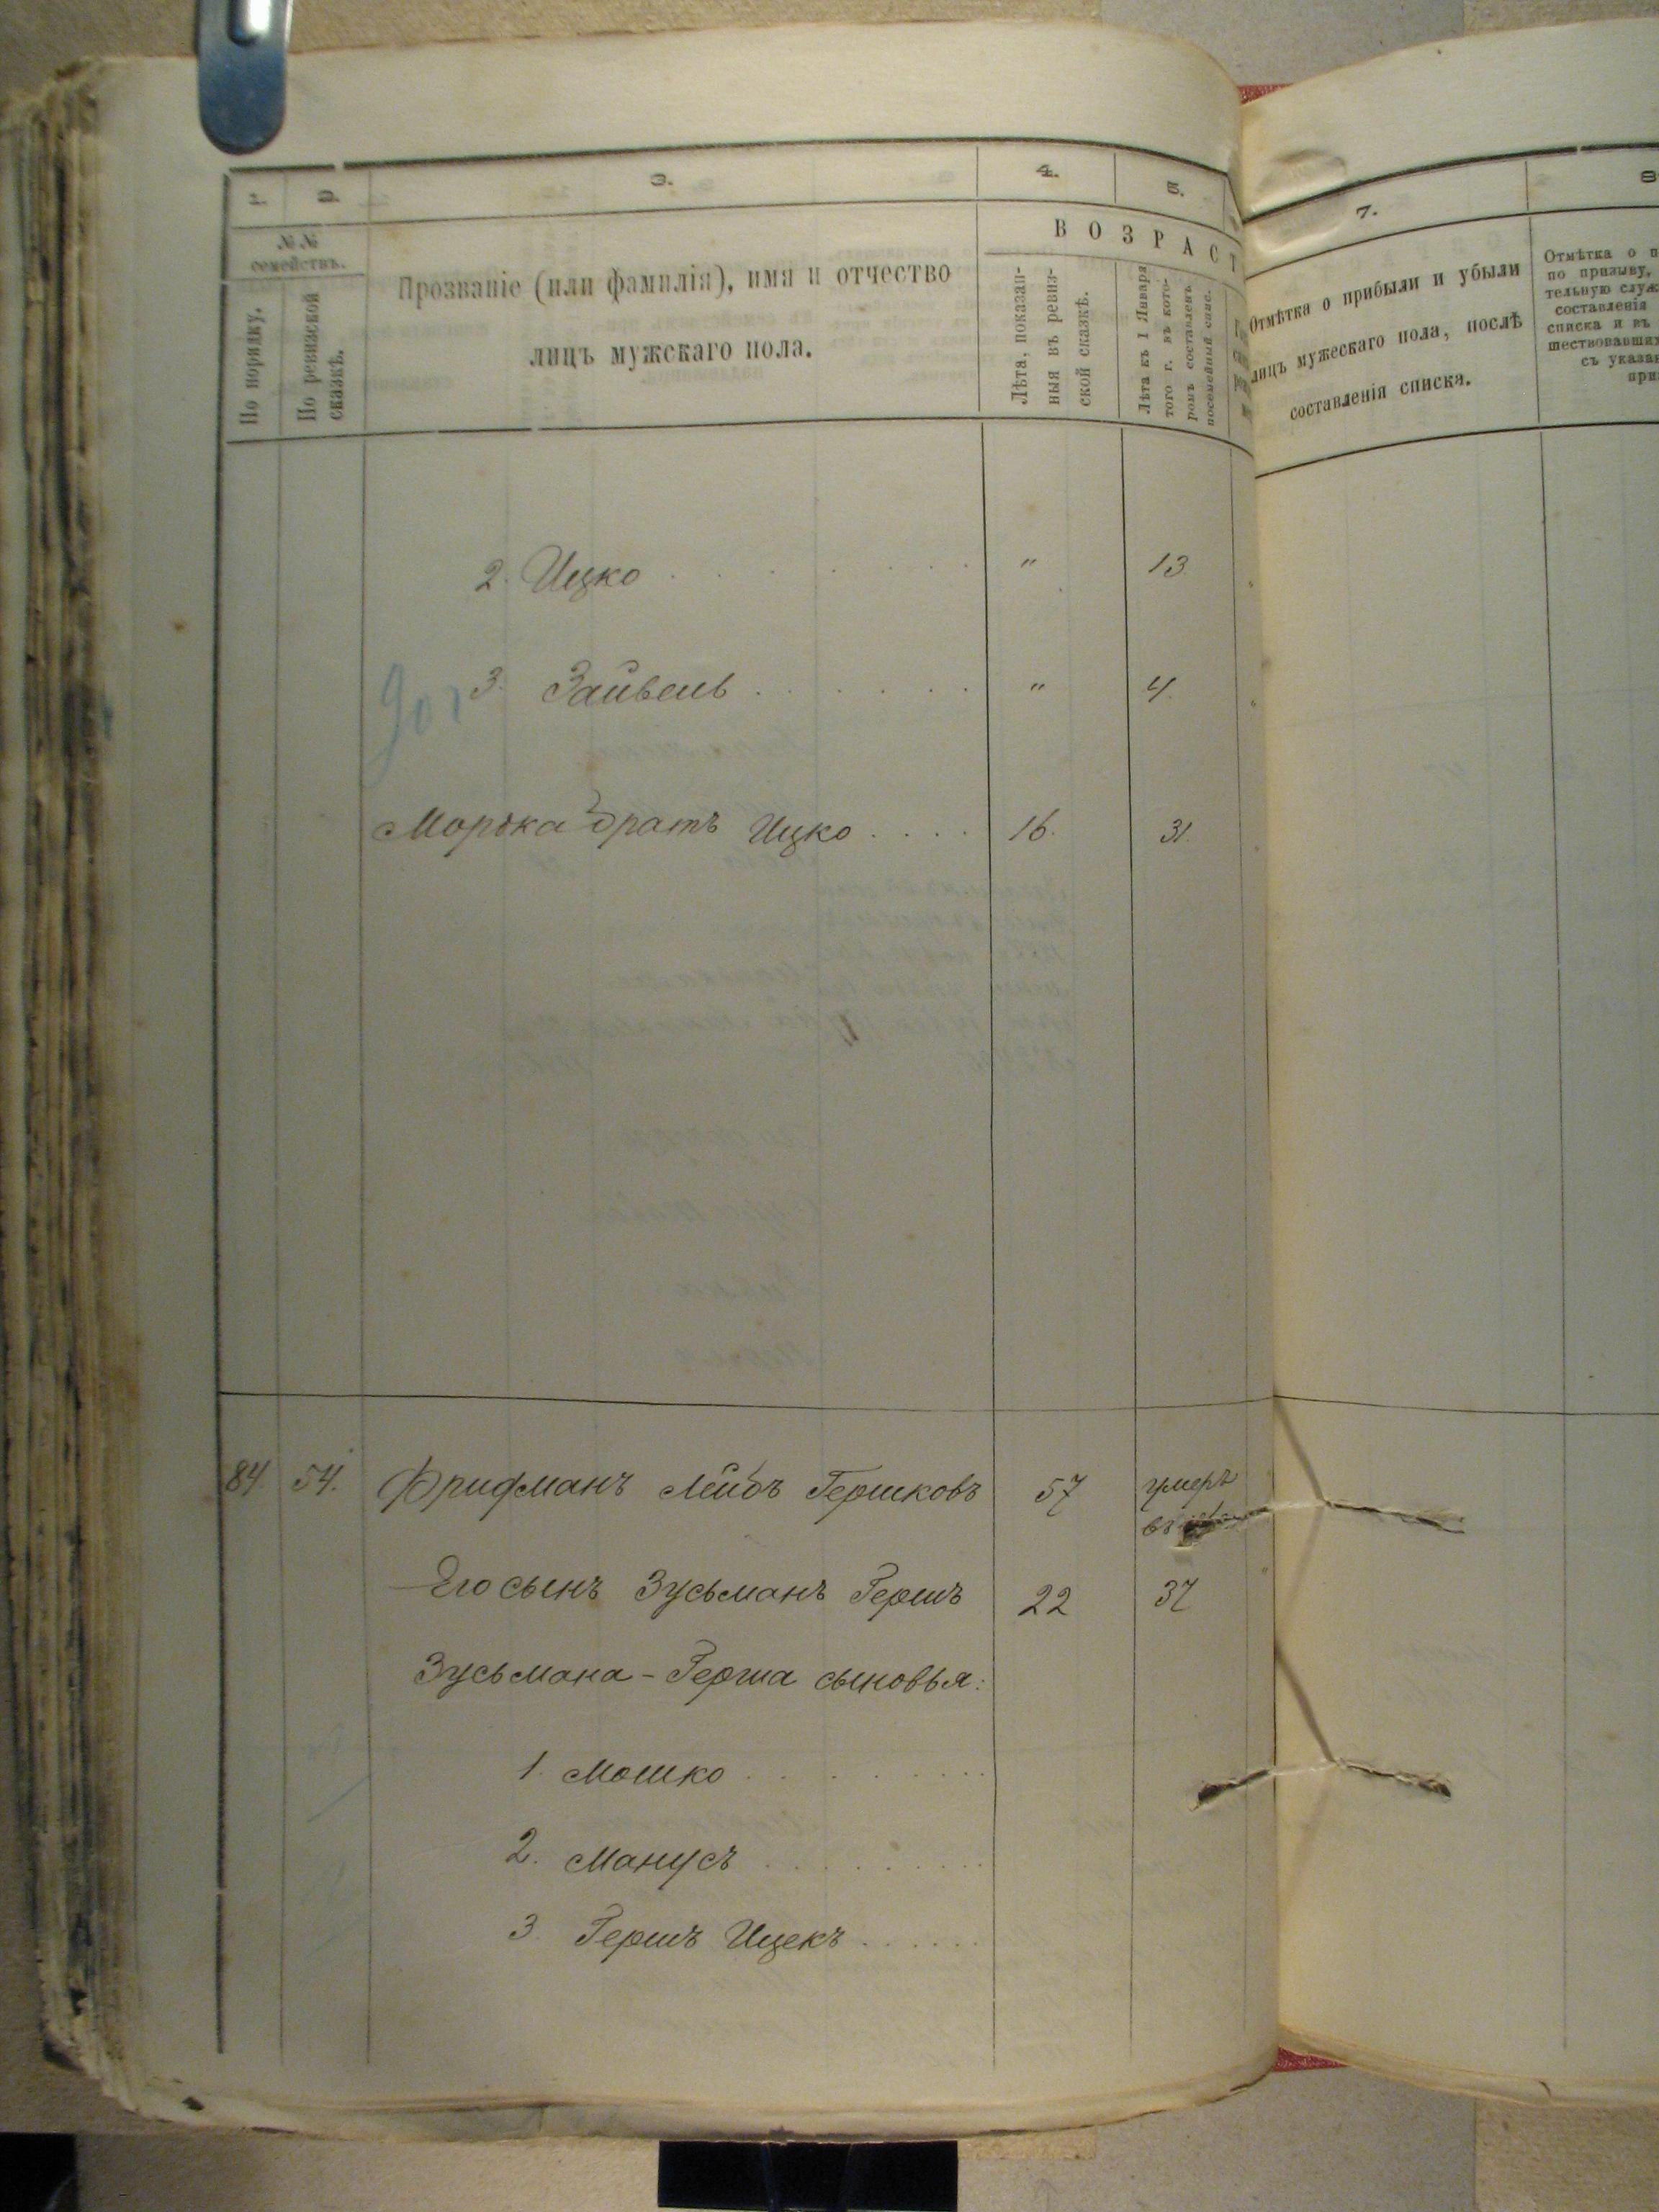 1. 2. 3. 4. 5.
№№ семействъ.
По порядку.
По ревизской сказкѣ.
Прозваніе (или фамилія), имя и отчество
лицъ мужскаго пола.
ВОЗРАСТ
Лѣта, показан-
ныя въ ревиз-
ской сказкѣ.
Лѣта къ 1 Января
того г. въ кото-
ромъ составленъ
посемейный спис.
2. Ицко . . . . . . . . " 13
3. Зайвель . . . . . . . " 4.
Морѣка братъ Ицко . . . . 16. 31.
84 54. Фрифманъ Лейбъ Гершковъ 57 умеръ
въ
Его сынъ Зусьманъ Гершъ 22 37
Зусьмана-Герша сыновья:
1. Мошко . . . . . . . . .
2. Манусъ . . . . . . . . .
3. Гершъ Ицекъ . . . . . .
7. 8
Отмѣтка о прибыли и убыли
лицъ мужескаго пола, послѣ
составленія списка.
Отмѣтка о п
по призыву,
тельную служ
составленія
списка и въ
шествовавших
съ указан
при